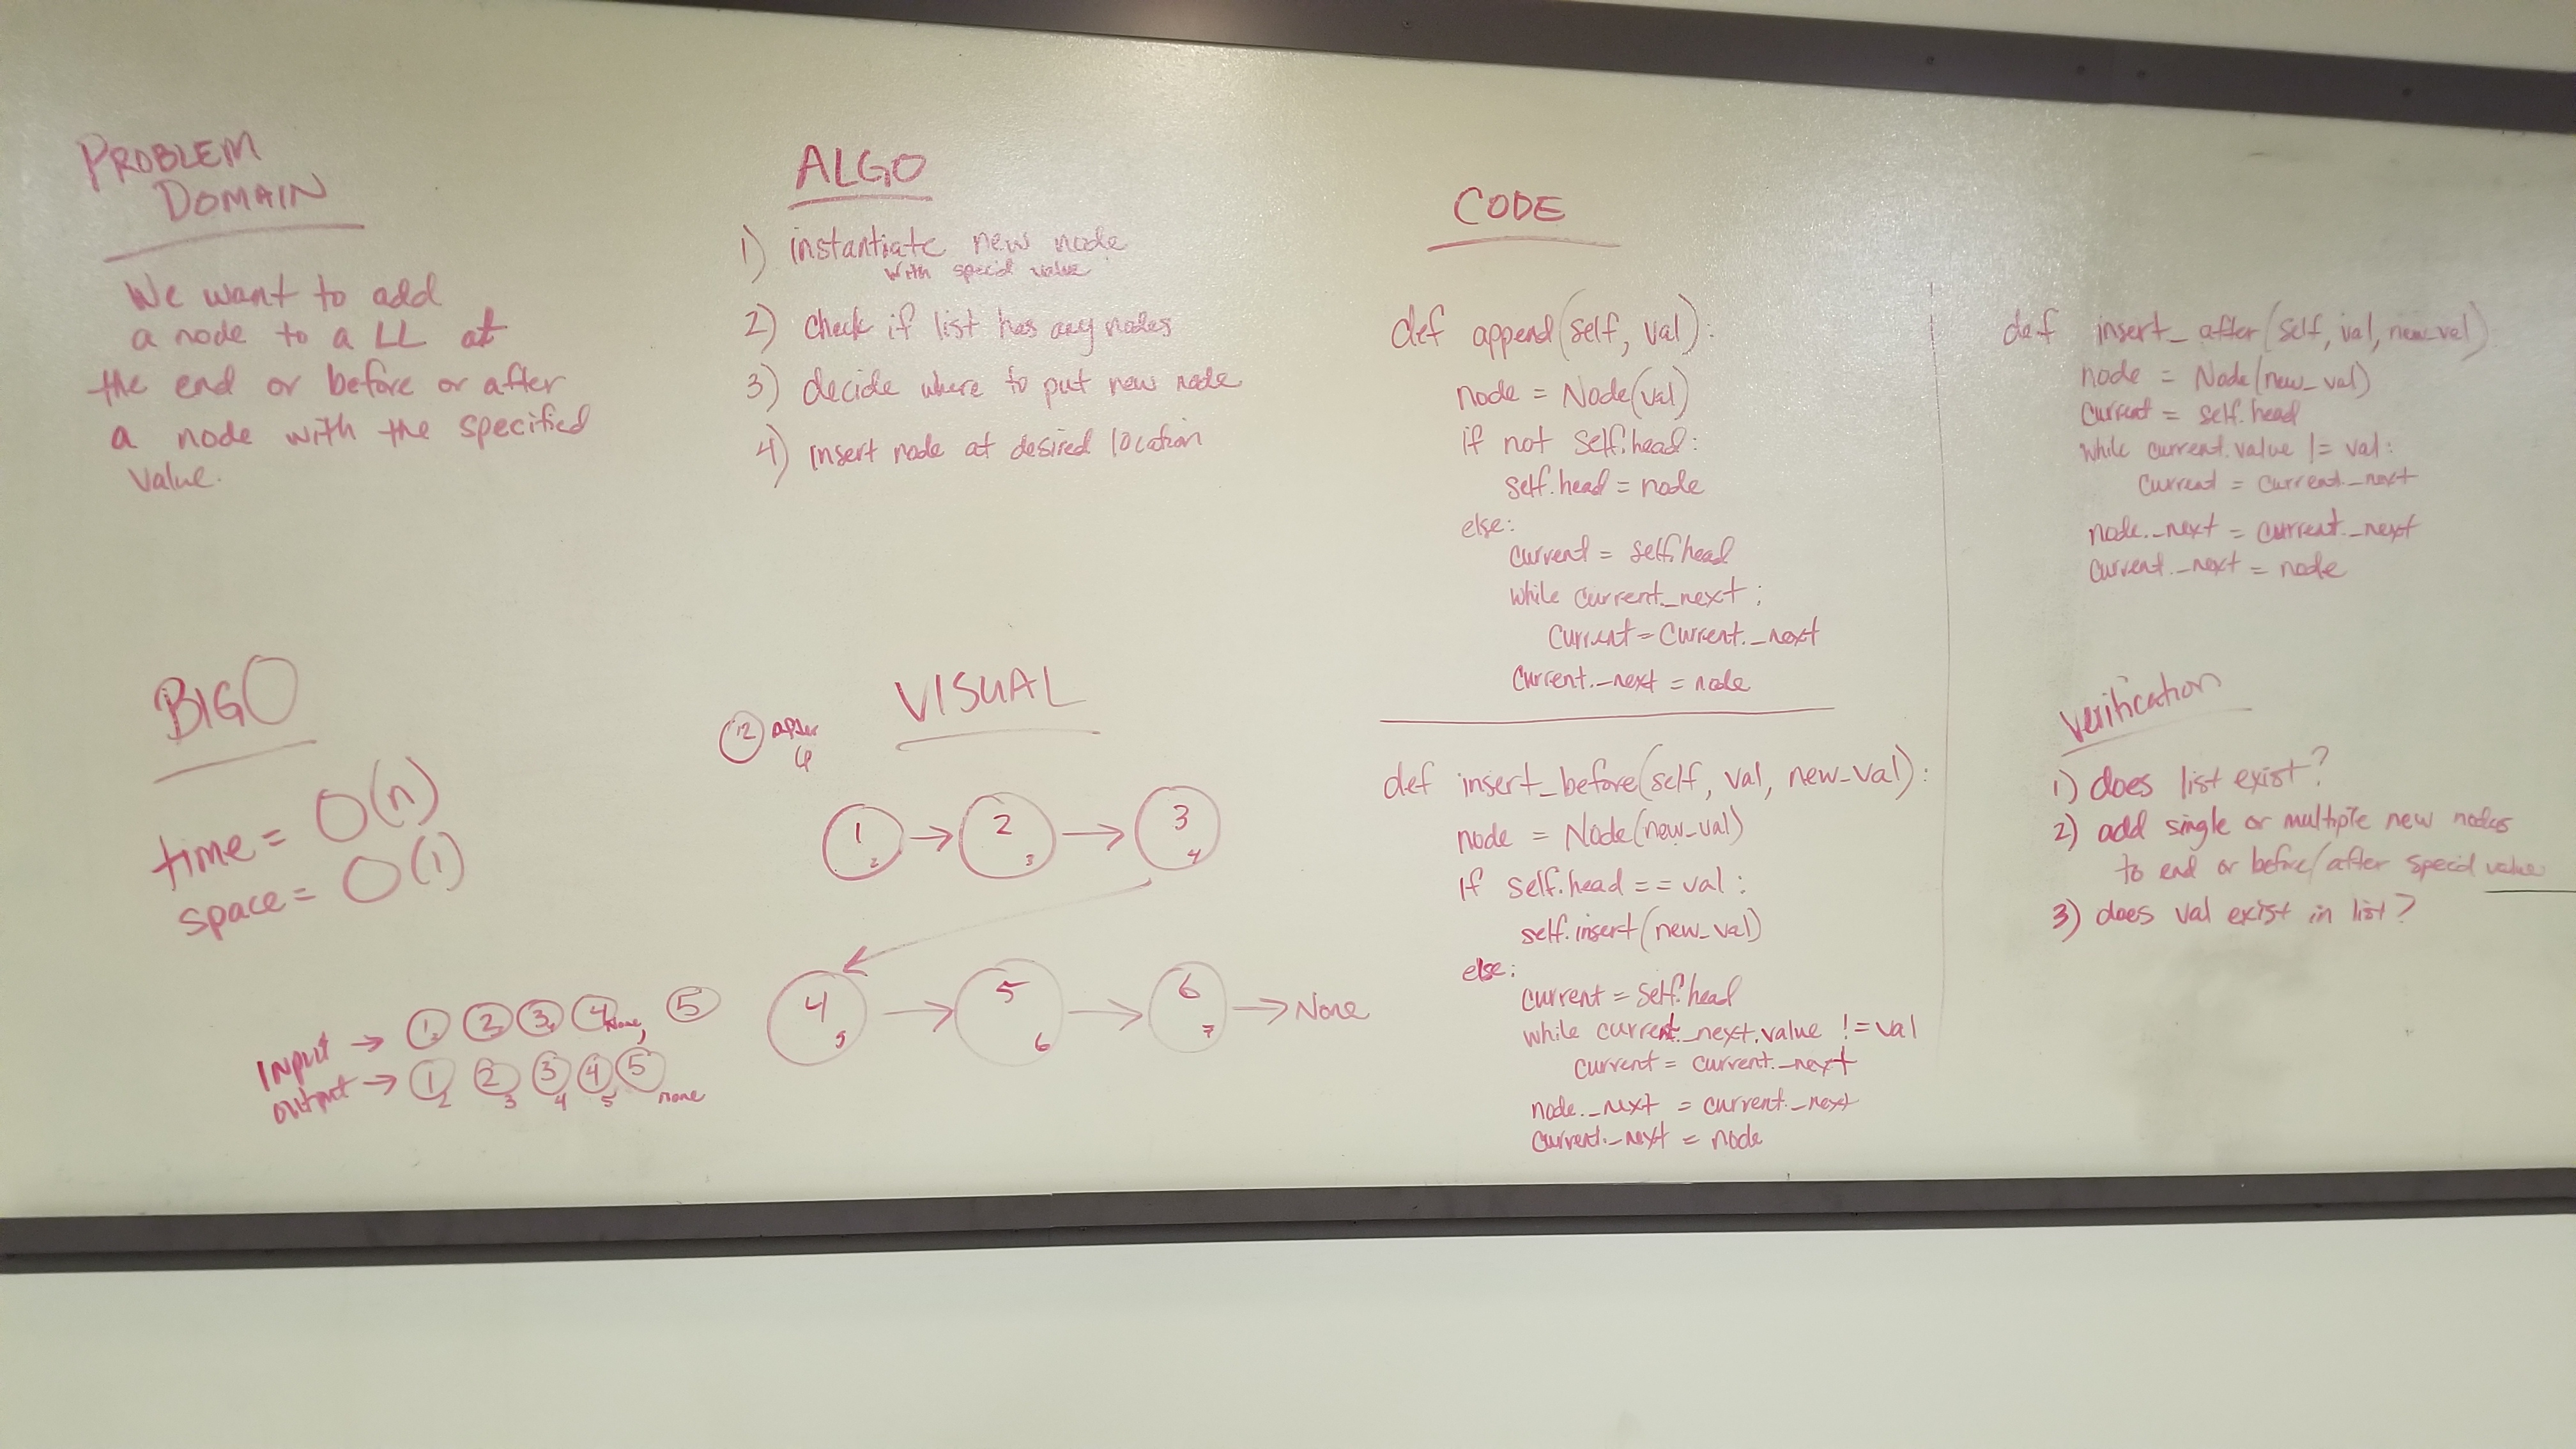 PROBLEM
DOMAIN
We want to add
a node to a LL at
the end or before or after
a node with the specified
value.
ALGO
1) instantiate new node
with specid value
2) check if list has any nodes
3) decide where to put new node
4) insert node at desired location
BIG O
time = O(n)
space = O(1)
Input → 1 2 2 3 3 4 4 None, 5
output → 1 2 2 3 3 4 4 5 5 none
VISUAL
12 after
4
1 2 → 2 3 → 3 4
4 5 → 5 6 → 6 7 → None
CODE
def append(self, val):
node = Node(val)
if not self.head:
self.head = node
else:
current = self.head
while current._next:
current = current._next
current._next = node
def insert_before(self, val, new_val):
node = Node(new_val)
if self.head == val:
self.insert(new_val)
else:
current = self.head
while current._next.value != val
current = current._next
node._next = current._next
current._next = node
def insert_after(self, val, new_val):
node = Node(new_val)
current = self.head
while current.value != val:
current = current._next
node._next = current._next
current._next = node
Verification
1) does list exist?
2) add single or multiple new nodes
to end or before/after specid value
3) does val exist in list?